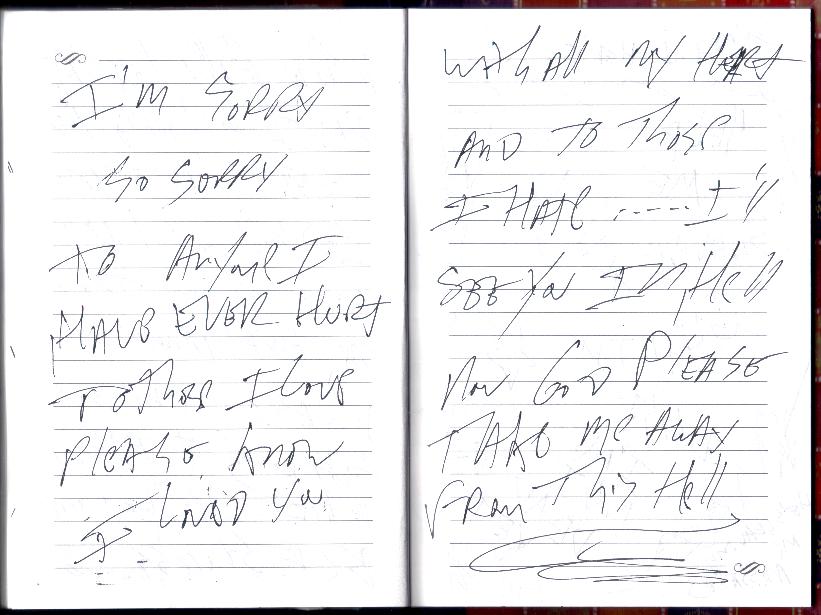 I'M SORRY
SO SORRY
TO ANYONE I
HAVE EVER HURT
TO THOSE I LOVE
PLEASE KNOW
I LOVED YOU
WITH ALL MY HEART
AND TO THOSE
I HATE ...... I'll
SEE YOU IN HELL
NOW GOD PLEASE
TAKE ME AWAY
FROM THIS HELL